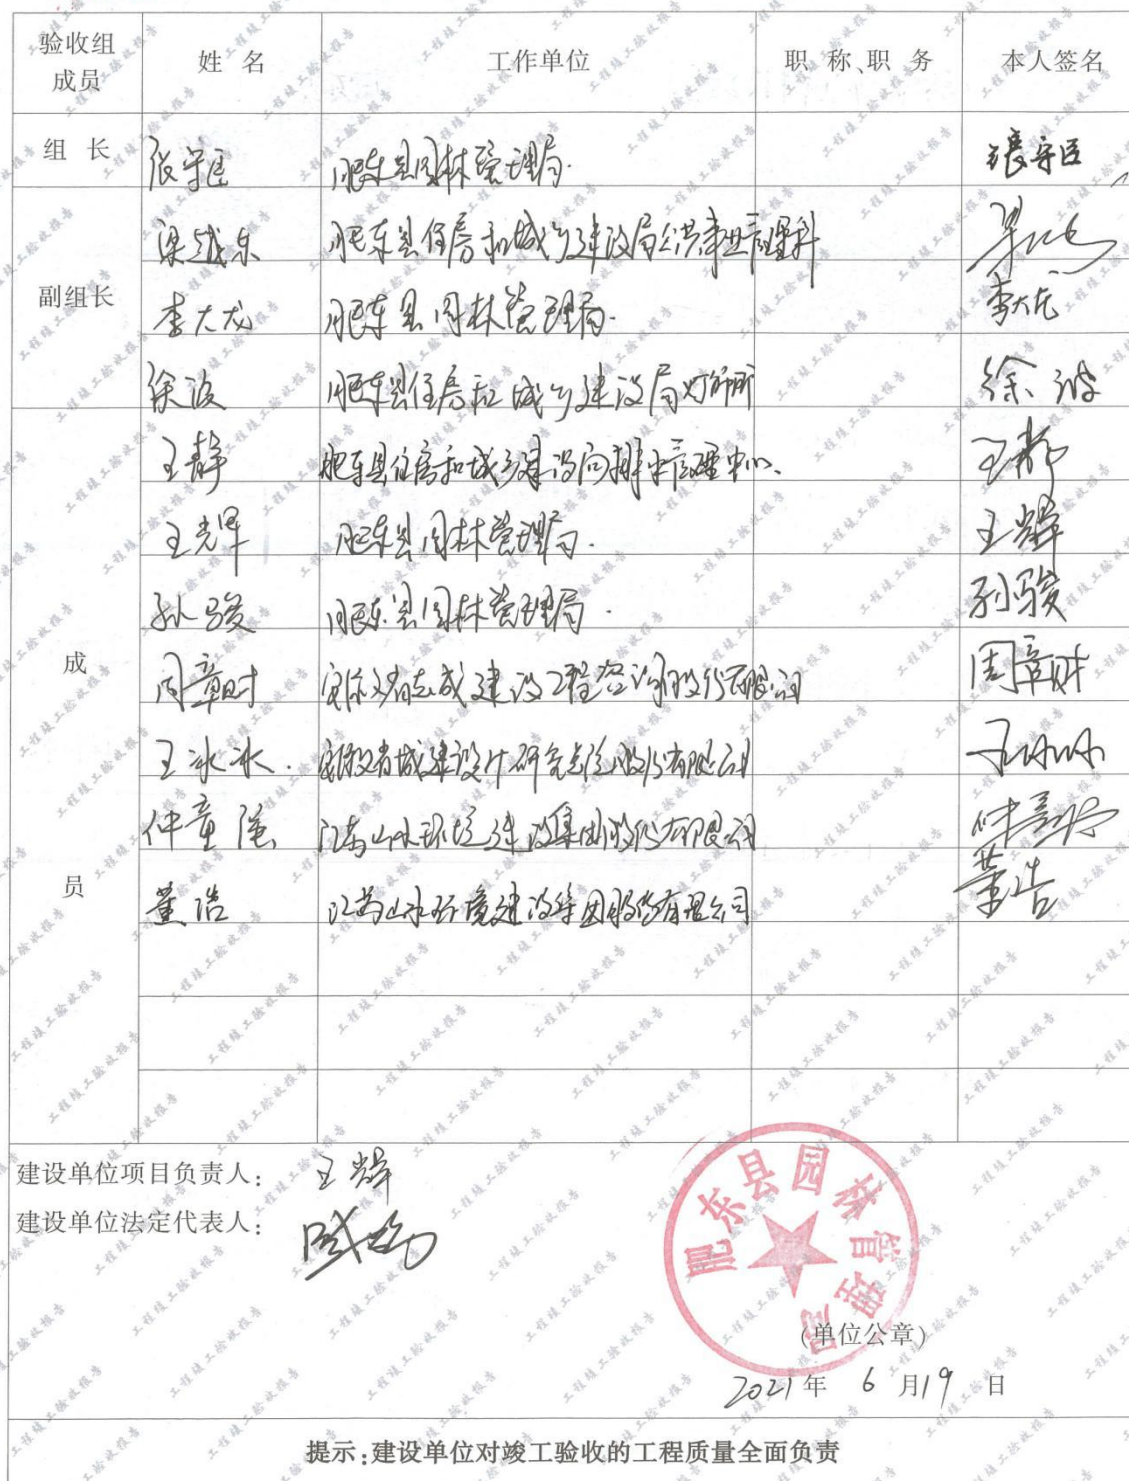 验收组成员 姓 名 工作单位 职 称、职 务 本人签名
组 长 张守臣 肥东县园林管理局. 张守臣
梁越东 肥东县住房和城乡建设局公共事业管理科
副组长 李大龙 肥东县园林管理局. 李大龙
徐波 肥东县住房和城乡建设局灯饰所 徐波
王静 肥东县住房和城乡建设局排水管理中心. 王静
王光辉 肥东县园林管理局. 王光辉
孙骏 肥东县园林管理局. 孙骏
成 周章财 安徽省志成建设工程咨询股份有限公司 周章财
王冰冰. 安徽省城建设计研究总院股份有限公司 王冰冰
仲童强 江苏山水环境建设集团股份有限公司 仲童强
员 董浩 江苏山水环境建设集团股份有限公司 董浩
建设单位项目负责人: 王光辉
建设单位法定代表人:
肥东县园林管理局
(单位公章)
2021年 6 月19 日
提示:建设单位对竣工验收的工程质量全面负责
工程竣工验收报告